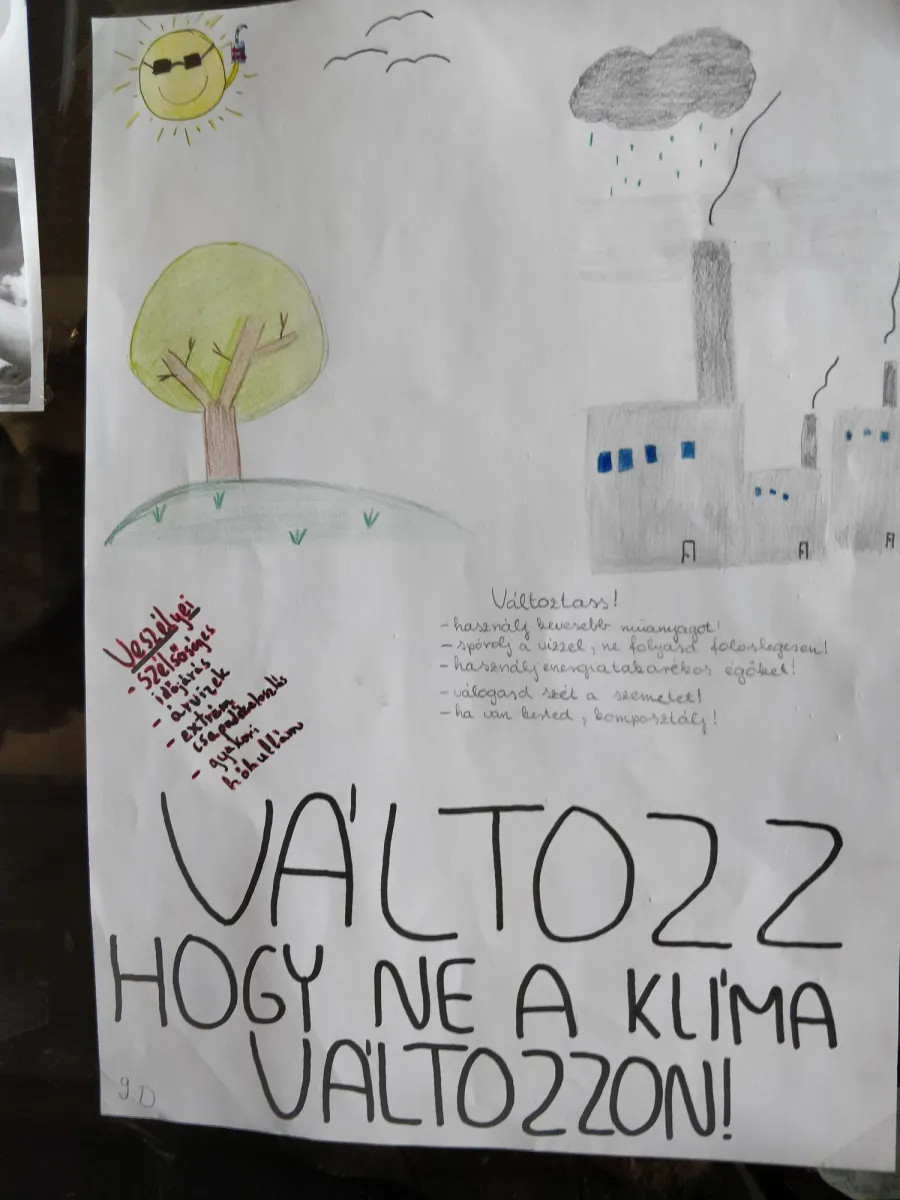 Veszélyei
- szélsőséges
időjárás
- árvizek
- extrém
csapadékeloszlás
- gyakori
hóhullám
Változtass!
- használj kevesebb műanyagot!
- spórolj a vízzel, ne folyasd fölöslegesen!
- használj energiatakarékos égőket!
- válogasd szét a szemetet!
- ha van kerted, komposztálj!
VÁLTOZZ
HOGY NE A KLÍMA
VÁLTOZZON!
9.D